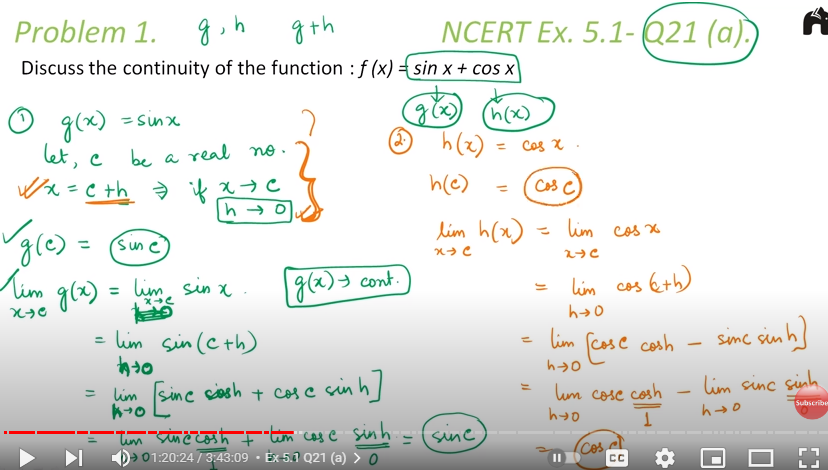 Problem 1. g, h g+h NCERT Ex. 5.1- Q21 (a).
Discuss the continuity of the function : f (x) = sin x + cos x
g(x) h(x)
① g(x) = sinx
let, c be a real no.
x = c+h ⇒ if x → c
h → 0
g(c) = sin c
lim x→c g(x) = lim x→c sin x
g(x) → cont.
= lim h→0 sin(c+h)
= lim h→0 [sinc cosh + cos c sinh]
= lim h→0 sinc cosh + lim cosc sinh = sinc
1 0
② h(x) = cos x.
h(c) = cos c
lim x→c h(x) = lim x→c cos x
= lim h→0 cos (c+h)
= lim h→0 [cosc cosh – sinc sinh]
= lim h→0 cosc cosh – lim h→0 sinc sinh
1 0
= cos c
Subscribe
1:20:24 / 3:43:09 • Ex 5.1 Q21 (a) >
CC